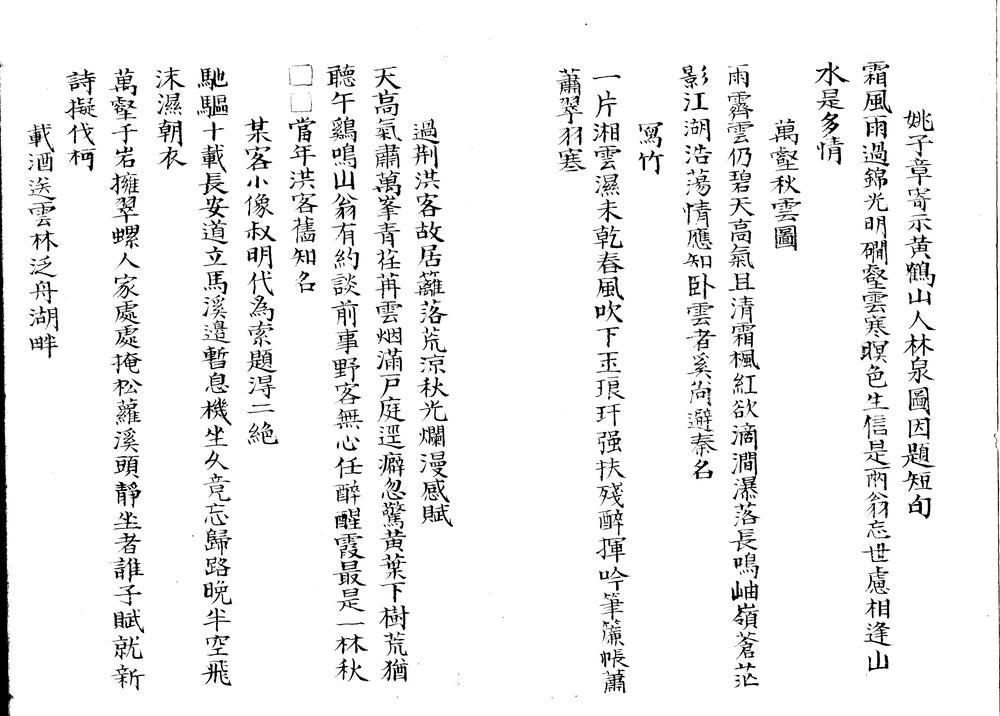 姚子章寄示黃鶴山人林泉圖因題短句
霜風雨過錦光明磵壑雲寒暝色生信是兩翁忘世慮相逢山
水是多情
萬壑秋雲圖
雨霽雲仍碧天高氣且清霜楓紅欲滴澗瀑落長鳴岫嶺蒼茫
影江湖浩蕩情應知卧雲者奚尚避秦名
寫竹
一片湘雲濕未乾春風吹下玉琅玕强扶殘醉揮吟筆簾帳蕭
蕭翠羽寒
過荆洪客故居籬落荒涼秋光爛漫感賦
天高氣肅萬峯青荏苒雲烟滿戸庭逕癖忽驚黃葉下樹荒猶
聽午鷄鳴山翁有約談前事野客無心任醉醒霞最是一林秋
□□當年洪客舊知名
某客小像叔明代為索題得二絶
馳驅十載長安道立馬溪邉暫息機坐久竟忘歸路晚半空飛
沫濕朝衣
萬壑千岩擁翠螺人家處處掩松蘿溪頭靜坐者誰子賦就新
詩擬伐柯
載酒送雲林泛舟湖畔